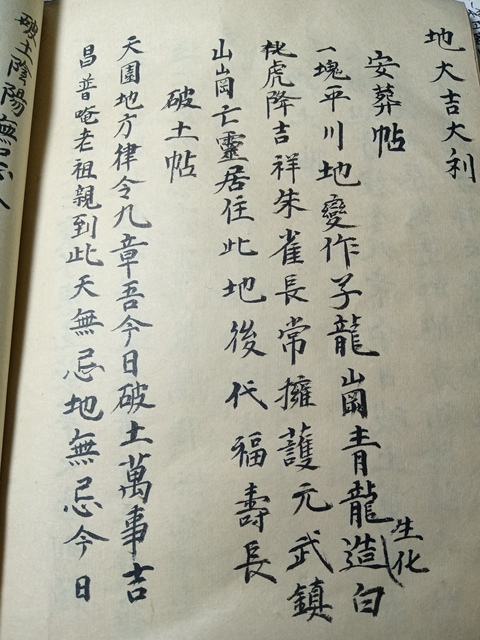 地大吉大利
安葬帖
一塊平川地變作子龍崗青龍造白
生化
秕虎降吉祥朱雀長常擁護元武鎮
山崗亡靈居住此地後代福壽長
破土帖
天園地方律令九章吾今日破土萬事吉
昌普唵老祖親到此天無忌地無忌今日
破土陰陽無忌